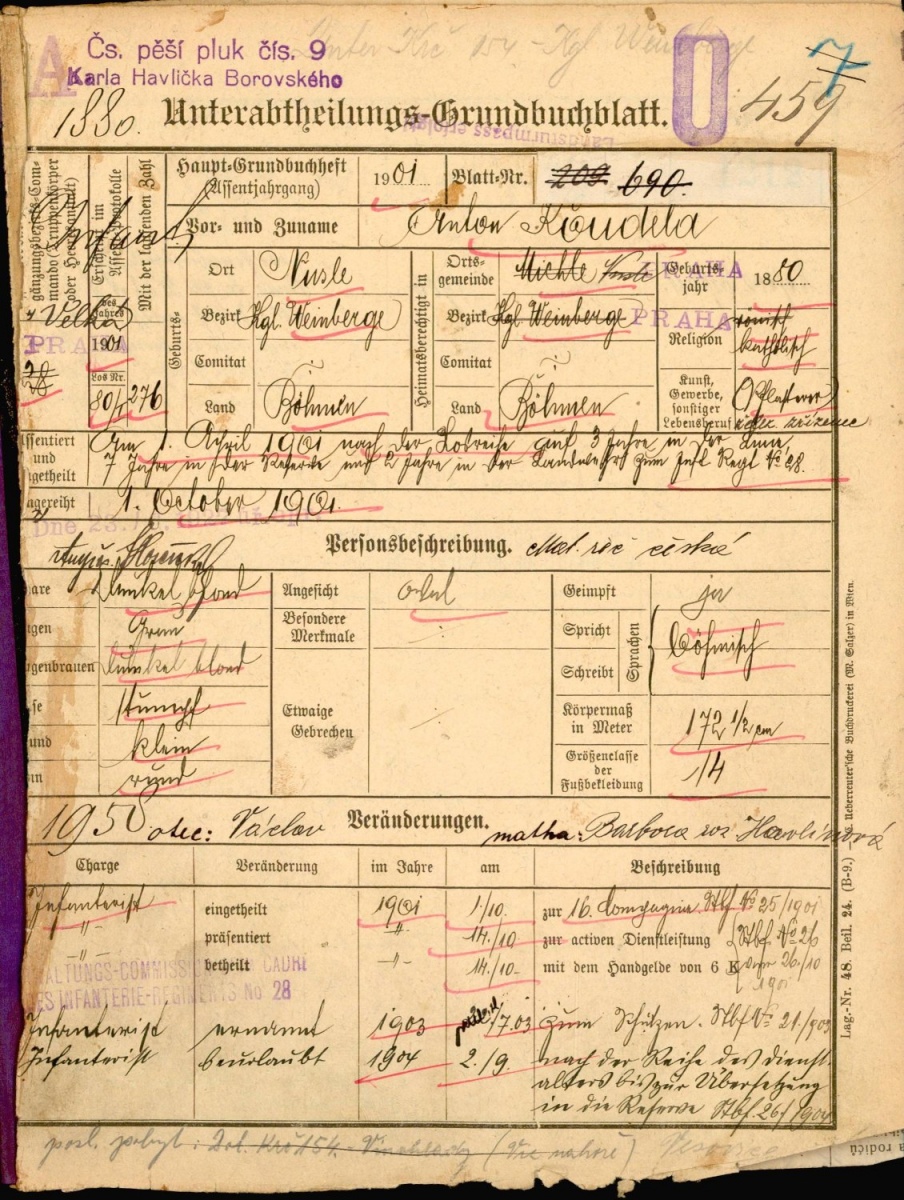 A Čs. pěší pluk čís. 9
Karla Havlíčka Borovského
Unter Krč 154 - Kgl Weinberge
7
1880. Unterabtheilungs-Grundbuchblatt. O 459
Landsturmpass erfolgt
gänzungsbezirks-Com-
mando (Truppenkörper
oder Heeresanstalt)
Infant
Velká
PRAHA
28
Erscheint im
Assentprotokolle
des
Jahres
1901
Los Nr.
80/I
Mit der laufenden Zahl
276
Haupt-Grundbuchheft
(Assentjahrgang) 1901 Blatt-Nr. 209 690.
Vor- und Zuname Anton Koudela
Geburts-
Ort Nusle
Bezirk Kgl. Weinberge
Comitat
Land Böhmen
Heimatsberechtigt in
Orts-
gemeinde Michle Nusle PRAHA
Bezirk Kgl. Weinberge PRAHA
Comitat
Land Böhmen
Geburts-
jahr 1880
Religion römisch
katholisch
Kunst,
Gewerbe,
sonstiger
Lebensberuf Pflasterer
žel. zřízenec
ssentiert
und
ngetheilt
Am 1. April 1901 nach der Losreihe auf 3 Jahre in der Linie
7 Jahre in der Reserve und 2 Jahre in der Landwehr zum Inft Regt No 28.
ngereiht 1. October 1901.
Dne 23.
Personsbeschreibung. Mat. řeč česká
are Dunkel blond
gen Grau
genbrauen Dunkel blond
se stumpf
und klein
in rund
Angesicht oval
Besondere
Merkmale
Etwaige
Gebrechen
Geimpft ja
Spricht
Schreibt
Sprachen
böhmisch
Körpermaß
in Meter 172 1/2 cm
Größenclasse
der
Fußbekleidung 14
1950 otec: Václav Veränderungen. matka: Barbora roz Havlínová
Charge Veränderung im Jahre am Beschreibung
Infanterist eingetheilt 1901 1/10. zur 16. Compagnie Stbf No 25/1901
-"- präsentiert -"- 14./10 zur activen Dienstleistung Stbf No 26
-"- betheilt -"- 14./10- mit dem Handgelde von 6 K vom 26./10
1901
ALTUNGS-COMMISSION CADRE
DES INFANTERIE-REGIMENTS No 28
Infanterist ernannt 1903 /7.03 zum Schützen. Stbf No 21/903
Infanterist beurlaubt 1904 2./9. nach der Reihe des Dienst-
alters bis zur Übersetzung
in die Reserve Stbf. 26/1904
posl. pobyt: Dol. Krč 154. Vinohrady (Viz nahoře)
a rodičů
Lag.-Nr. 48. Beil. 24. (B-9.) Ueberreuter'sche Buchdruckerei (M. Salzer) in Wien.